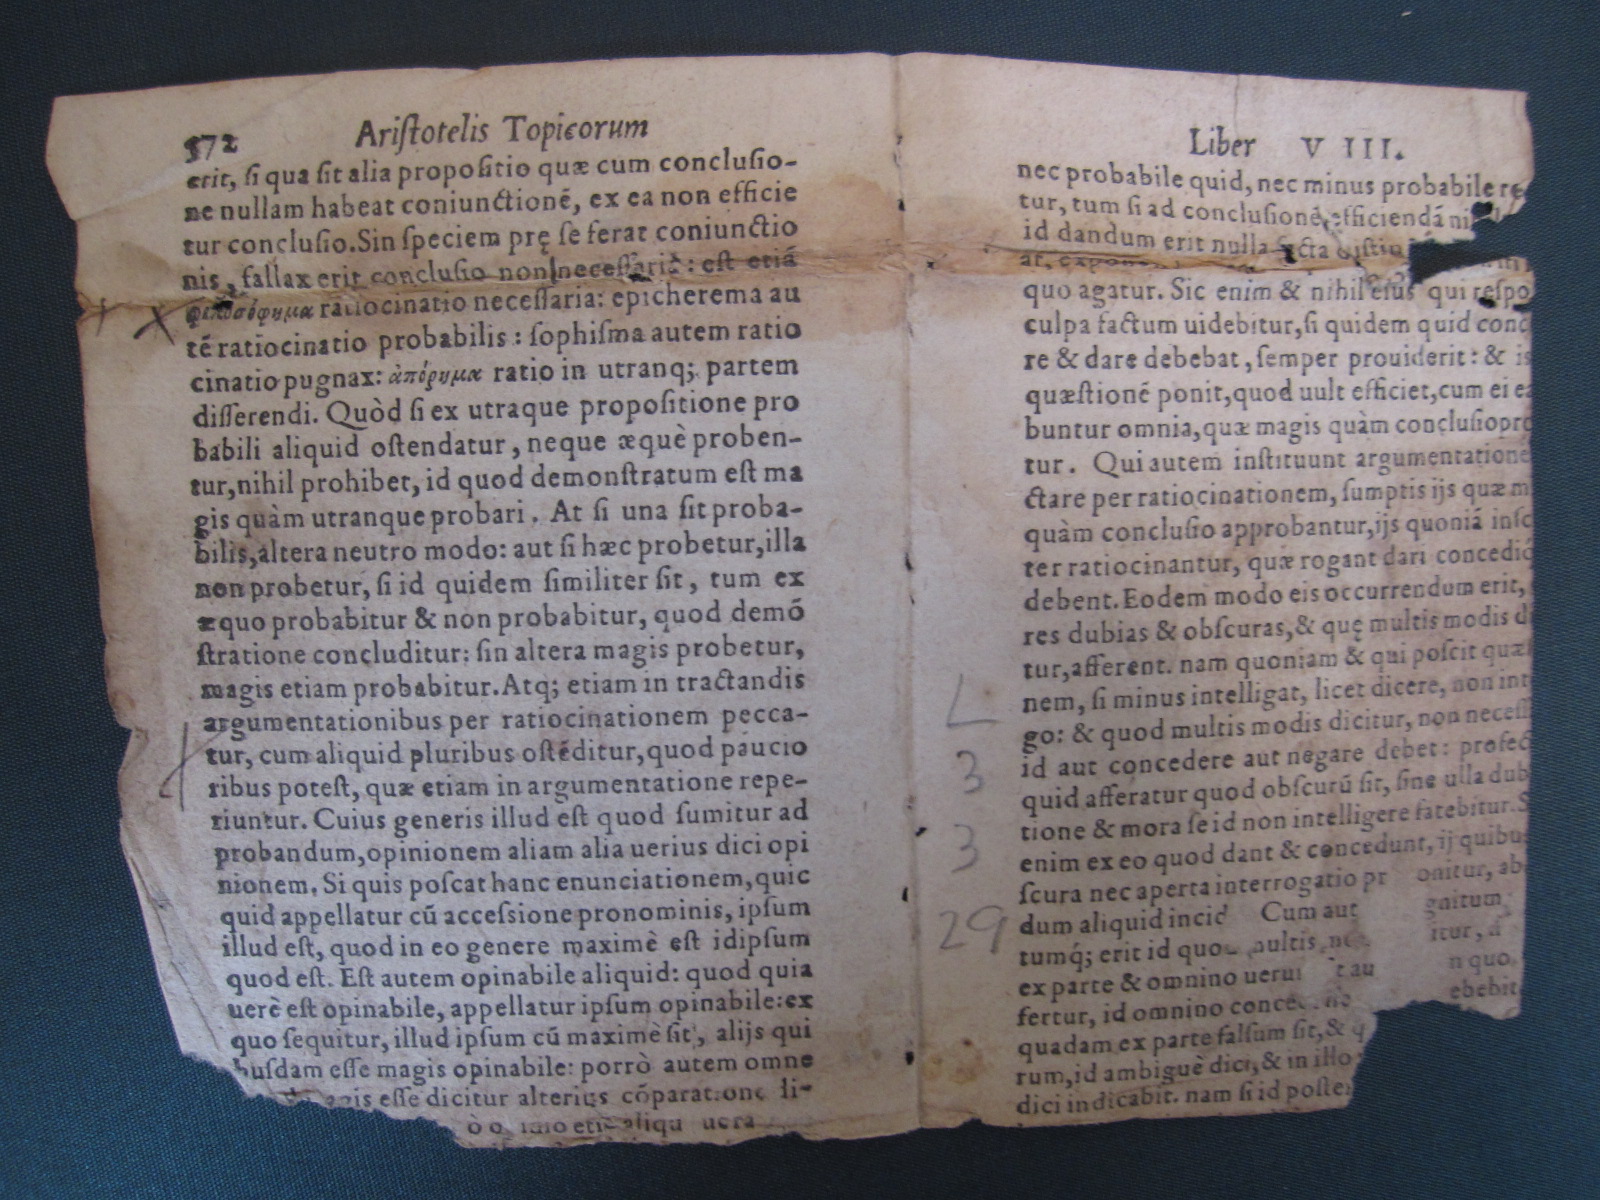 572 Aristotelis Topicorum
erit, si qua sit alia propositio quæ cum conclusio-
ne nullam habeat coniunctionẽ, ex ea non efficie
tur conclusio. Sin speciem prę se ferat coniunctio
nis, fallax erit conclusio non necessaria: est etiã
φιλοσόφημα ratiocinatio necessaria: epicherema au
tẽ ratiocinatio probabilis: sophisma autem ratio
cinatio pugnax: ἀπόρημα ratio in utranq; partem
disserendi. Quòd si ex utraque propositione pro
babili aliquid ostendatur, neque æquè proben-
tur, nihil prohibet, id quod demonstratum est ma
gis quàm utranque probari. At si una sit proba-
bilis, altera neutro modo: aut si hæc probetur, illa
non probetur, si id quidem similiter sit, tum ex
æquo probabitur & non probabitur, quod demõ
stratione concluditur: sin altera magis probetur,
magis etiam probabitur. Atq; etiam in tractandis
argumentationibus per ratiocinationem pecca-
tur, cum aliquid pluribus ostẽditur, quod paucio
ribus potest, quæ etiam in argumentatione repe-
riuntur. Cuius generis illud est quod sumitur ad
probandum, opinionem aliam alia uerius dici opi
nionem. Si quis poscat hanc enunciationem, quic
quid appellatur cũ accessione pronominis, ipsum
illud est, quod in eo genere maximè est idipsum
quod est. Est autem opinabile aliquid: quod quia
uerè est opinabile, appellatur ipsum opinabile: ex
quo sequitur, illud ipsum cũ maximè sit, alijs qui
busdam esse magis opinabile: porrò autem omne
esse dicitur alterius cõparatione li-
uera
Liber VIII.
nec probabile quid, nec minus probabile re
tur, tum si ad conclusionẽ efficiendã ni
id dandum erit nulla
quo agatur. Sic enim & nihil eius qui respo
culpa factum uidebitur, si quidem quid conc
re & dare debebat, semper prouiderit: & is
quæstionẽ ponit, quod uult efficiet, cum ei ea
buntur omnia, quæ magis quàm conclusio pro
tur. Qui autem instituunt argumentatione
ctare per ratiocinationem, sumptis ijs quæ m
quàm conclusio approbantur, ijs quoniã insc
ter ratiocinantur, quæ rogant dari concediq́
debent. Eodem modo eis occurrendum erit,
res dubias & obscuras, & quę multis modis d
tur, afferent. nam quoniam & qui poscit quæs
L nem, si minus intelligat, licet dicere, non int
go: & quod multis modis dicitur, non necess
3 id aut concedere aut negare debet: profec
quid afferatur quod obscurũ sit, sine ulla dub
tione & mora se id non intelligere fatebitur. S
3 enim ex eo quod dant & concedunt, ij quibus
scura nec aperta interrogatio pr onitur, ab
29 dum aliquid incid Cum aut gnitum
tumq́; erit id quod multis itur,
ex parte & omnino ueru n quo
fertur, id omnino conce ebebit
quadam ex parte falsum sit, & q
rum, id ambiguè dici, & in illo
dici indicabit. nam si id poste